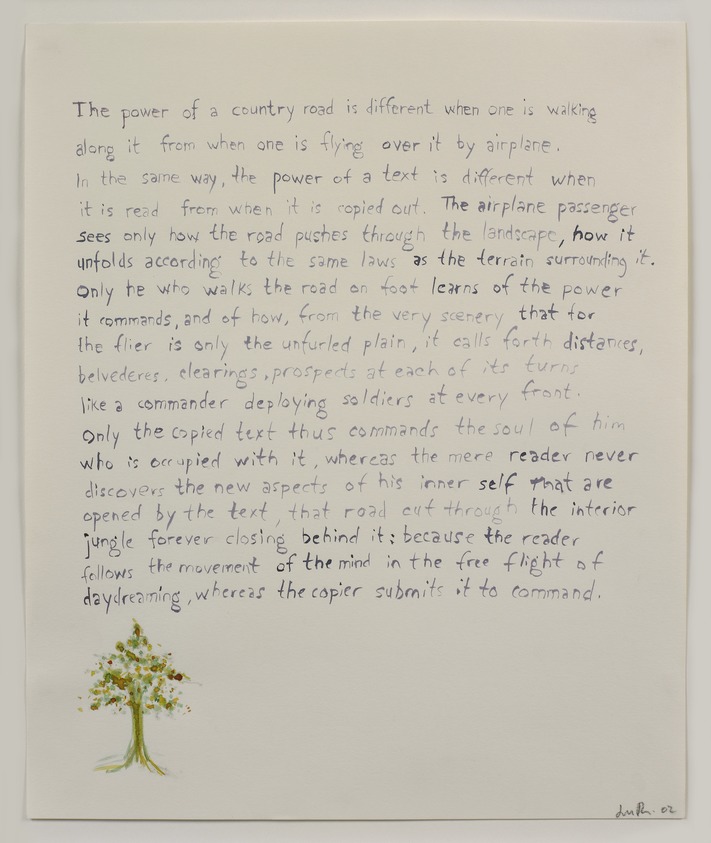 The power of a country road is different when one is walking
along it from when one is flying over it by airplane.
In the same way, the power of a text is different when
it is read from when it is copied out. The airplane passenger
sees only how the road pushes through the landscape, how it
unfolds according to the same laws as the terrain surrounding it.
Only he who walks the road on foot learns of the power
it commands, and of how, from the very scenery that for
the flier is only the unfurled plain, it calls forth distances,
belvederes, clearings, prospects at each of its turns
like a commander deploying soldiers at every front.
Only the copied text thus commands the soul of him
who is occupied with it, whereas the mere reader never
discovers the new aspects of his inner self that are
opened by the text, that road cut through the interior
jungle forever closing behind it: because the reader
follows the movement of the mind in the free flight of
daydreaming, whereas the copier submits it to command.
02